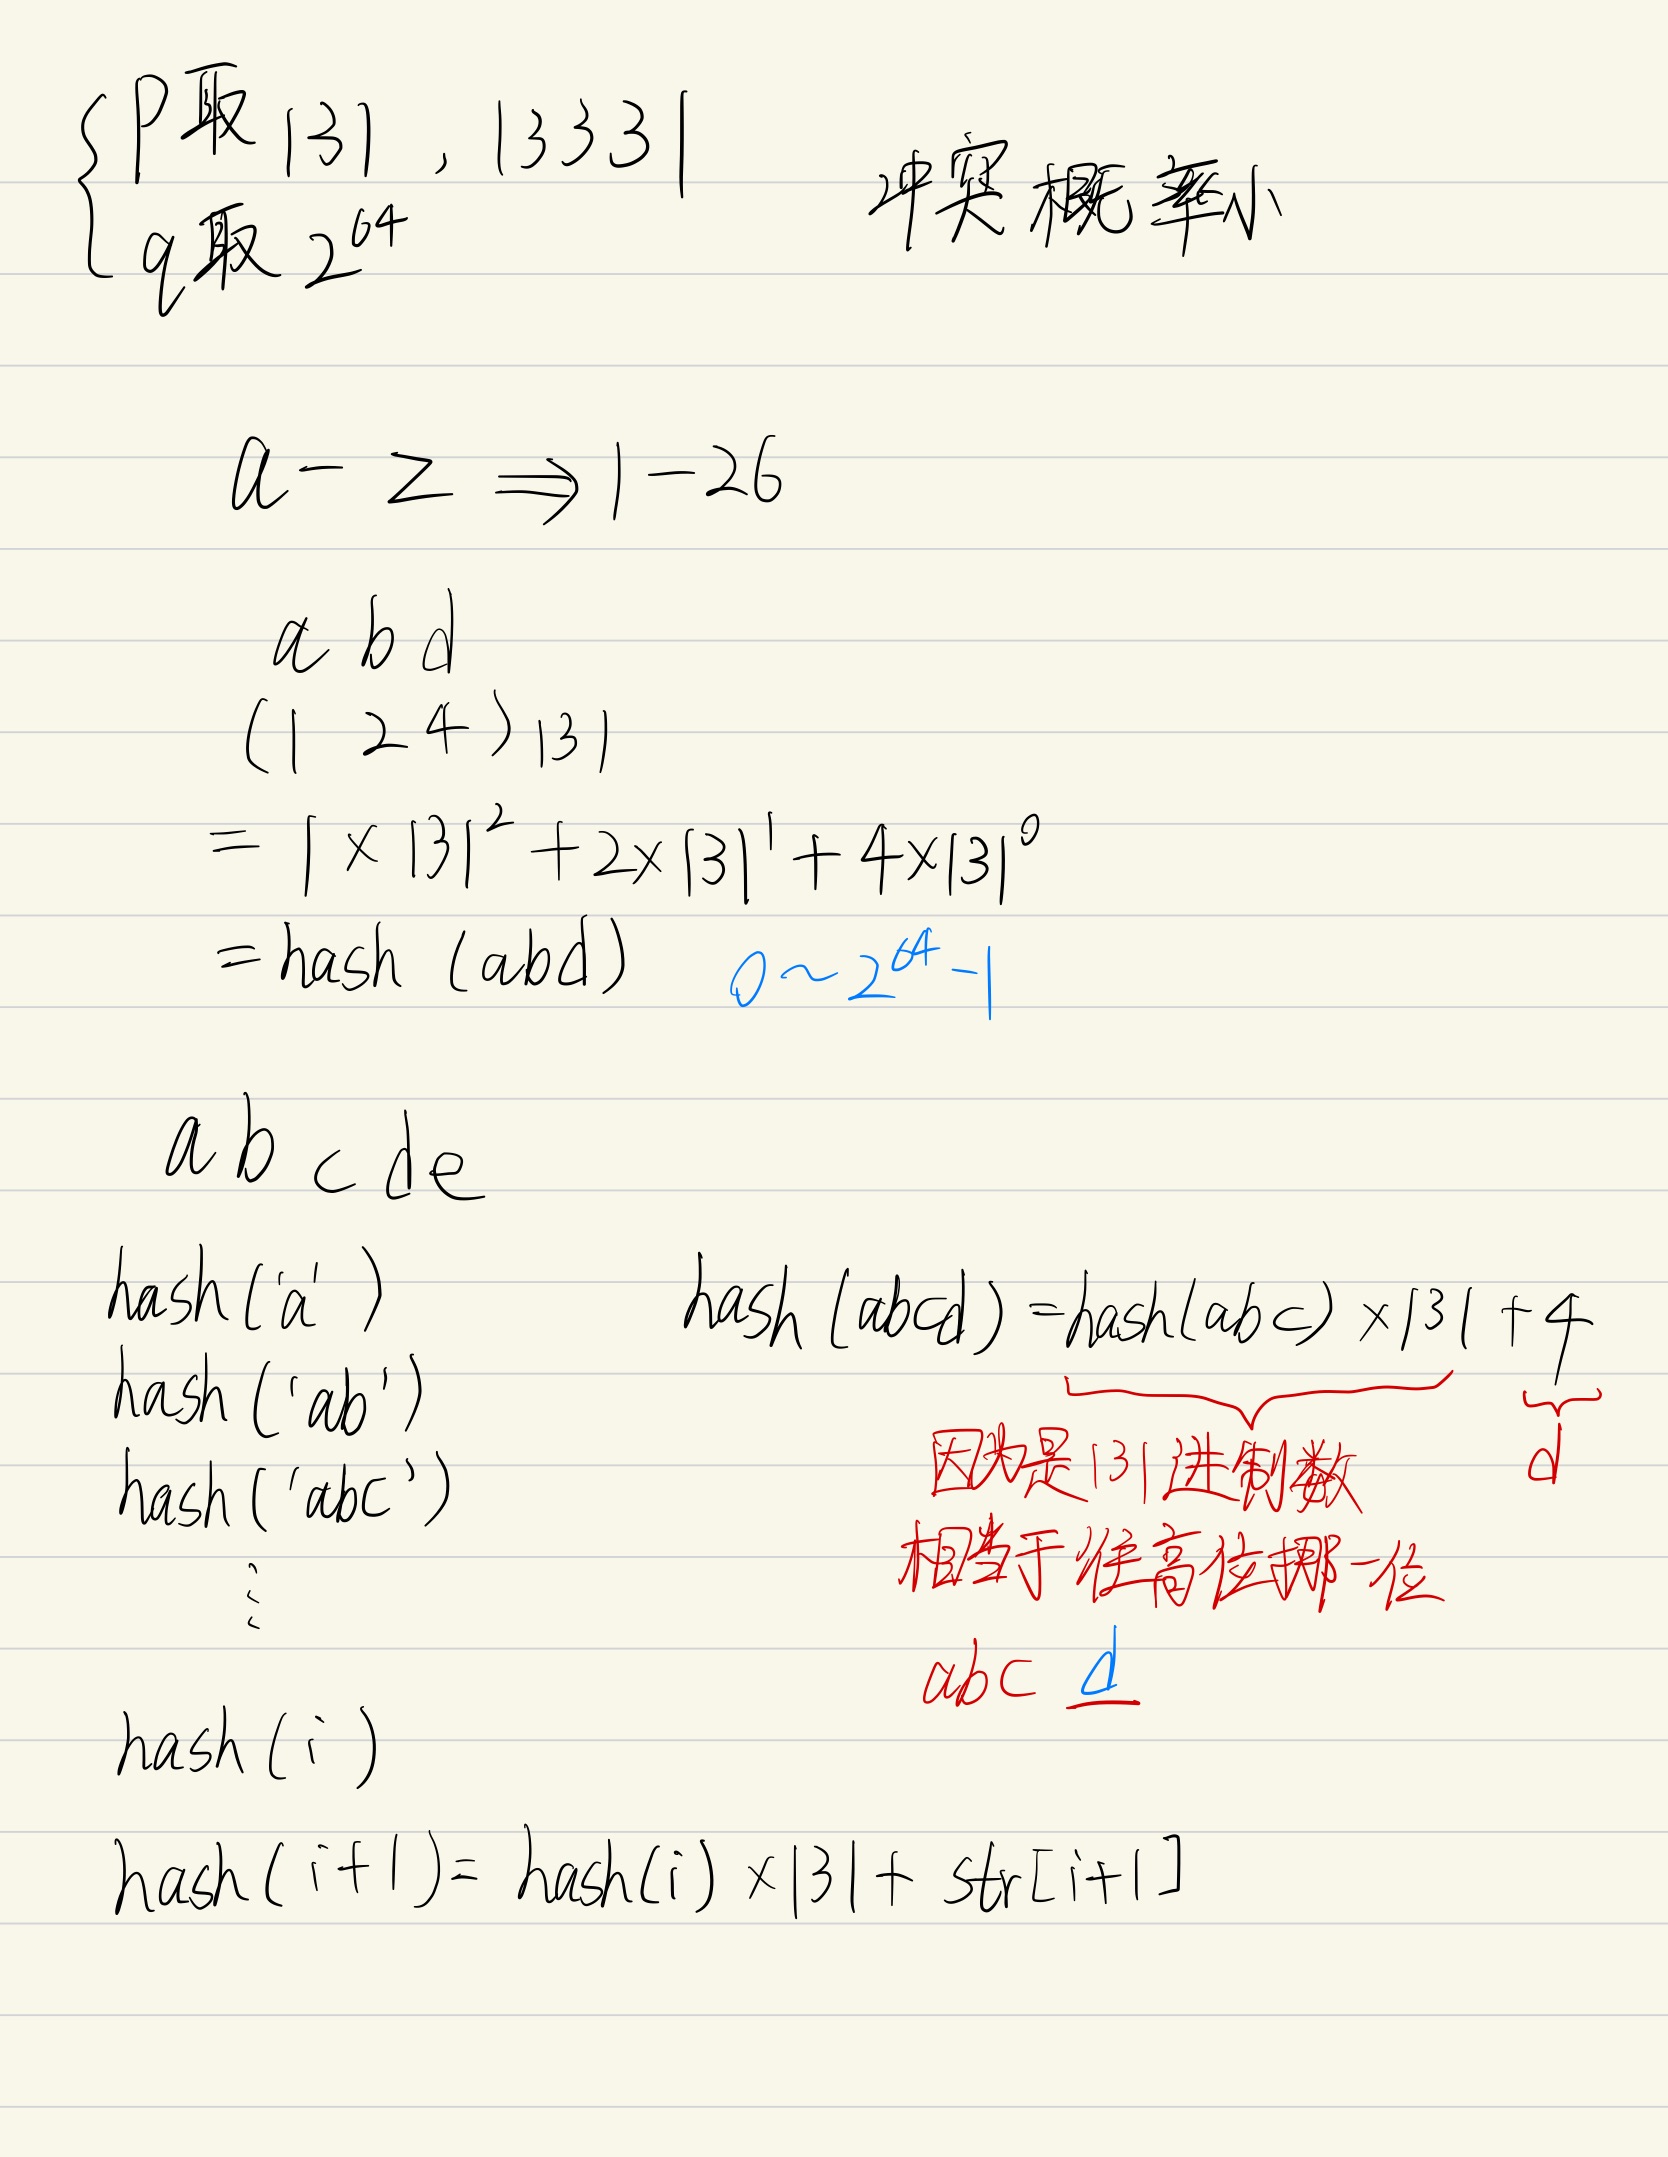 p取 131 , 13331
q取 2^64
冲突概率小
a - z ⇒ 1 - 26
a b d
(1 2 4)131
= 1 × 131² + 2 × 131¹ + 4 × 131⁰
= hash (abd) 0 ~ 2^64 - 1
a b c d e
hash('a')
hash('ab')
hash('abc')
⋮
hash (abcd) = hash(abc) × 131 + 4
因为是131进制数
d
相当于往高位挪一位
abc d
hash(i)
hash(i+1) = hash(i) × 131 + str[i+1]